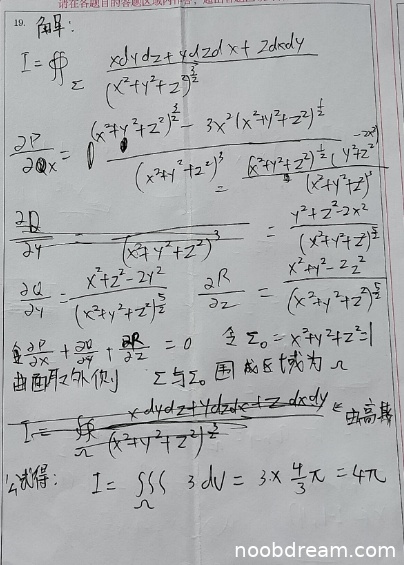 请在各题目的答题区域内作答,超出
19. 解:
I = ∯_Σ (xdydz + ydzdx + zdxdy) / (x²+y²+z²)^(3/2)
∂P/∂x = ((x²+y²+z²)^(3/2) - 3x²(x²+y²+z²)^(1/2)) / (x²+y²+z²)³ = (x²+y²+z²)^(1/2) (y²+z²-2x²) / (x²+y²+z²)³
∂Q/∂y = / (x²+y²+z²)³ = (y²+z²-2x²) / (x²+y²+z²)^(5/2)
∂Q/∂y = (x²+z²-2y²) / (x²+y²+z²)^(5/2) ∂R/∂z = (x²+y²-2z²) / (x²+y²+z²)^(5/2)
∂P/∂x + ∂Q/∂y + ∂R/∂z = 0 令 Σ₀ = x²+y²+z²=1
曲面取外侧 Σ与Σ₀围成区域为Ω
I = ∯_Ω (xdydz + ydzdx + zdxdy) / (x²+y²+z²)^(3/2) 由高斯
公式得: I = ∭_Ω 3dv = 3 × 4/3 π = 4π
noobdream.com